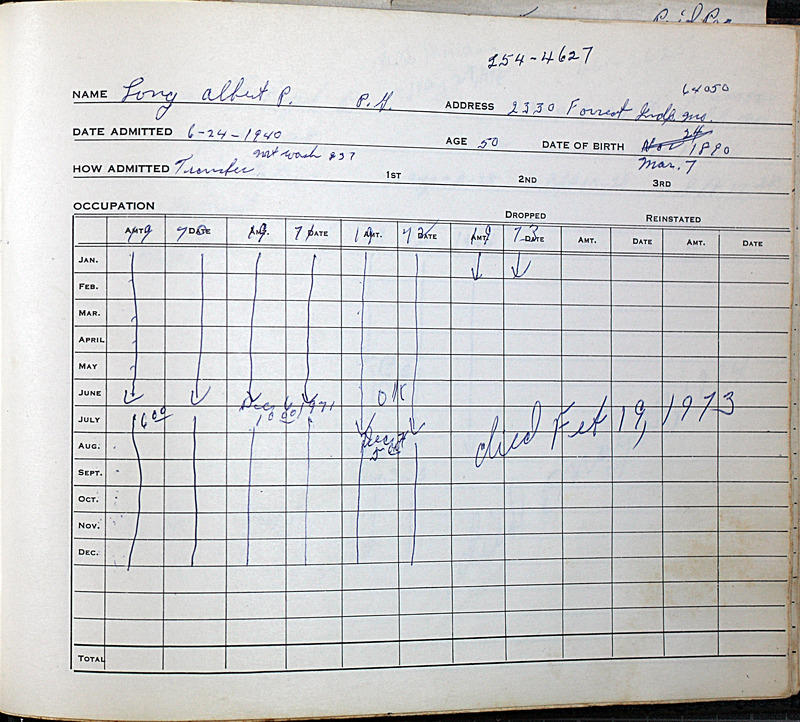 254-4627
64050
NAME Long Albert P. P.H. ADDRESS 2330 Forrest Indp mo.
DATE ADMITTED 6-24-1940 AGE 50 DATE OF BIRTH Nov 24 1890
HOW ADMITTED Transfer mt wash 537 1ST 2ND Mar. 7 3RD
OCCUPATION DROPPED REINSTATED
AMT. 19 70 DATE AMT. 19 71 DATE AMT. 19 72 DATE AMT. 19 73 DATE AMT. DATE AMT. DATE
JAN.
FEB.
MAR.
APRIL
MAY
JUNE OK
Dec 6 1971
JULY 6.00 10.00 died Feb 19, 1973
AUG. 5.00
SEPT.
OCT.
NOV.
DEC.
TOTAL